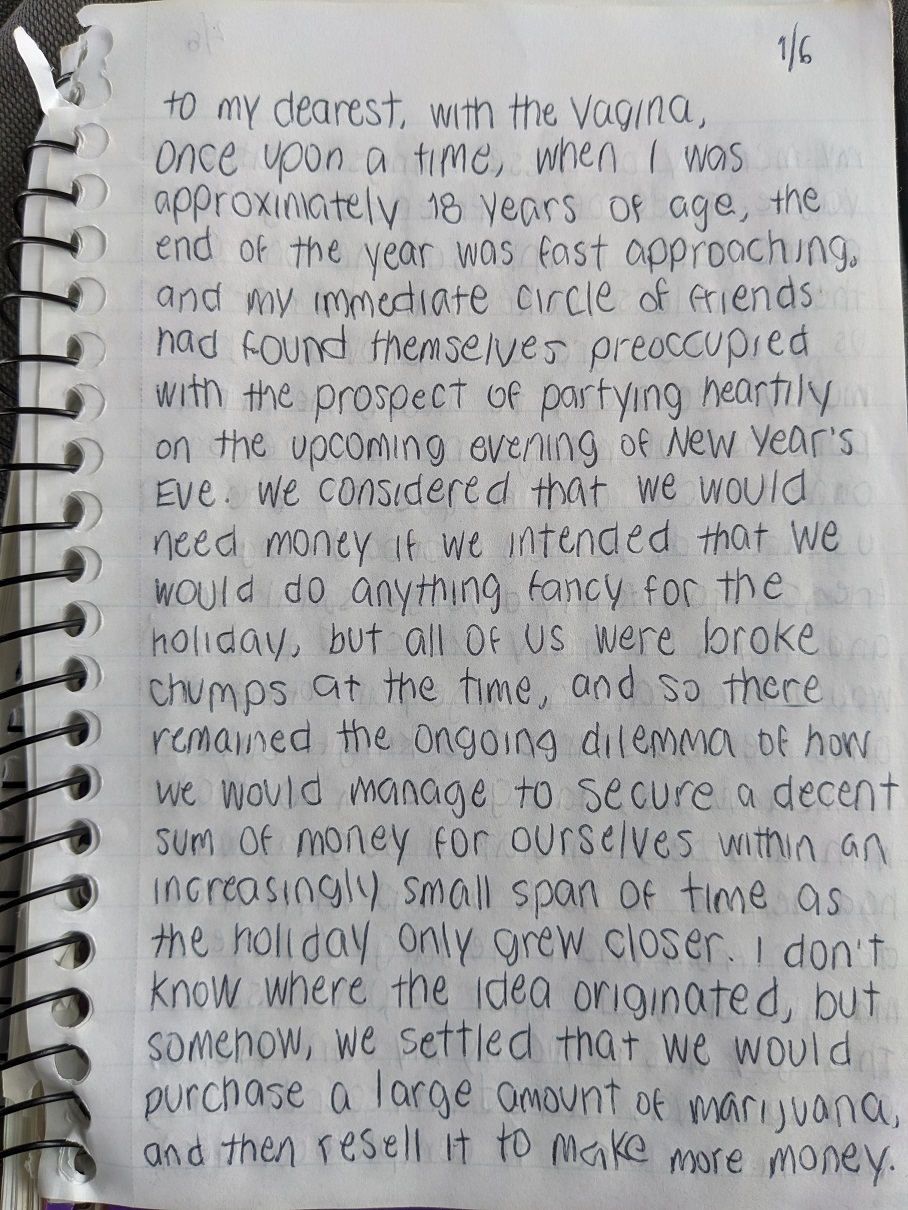 1/6
to my dearest, with the vagina,
once upon a time, when I was
approximately 18 years of age, the
end of the year was fast approaching,
and my immediate circle of friends
had found themselves preoccupied
with the prospect of partying heartily
on the upcoming evening of New Year's
Eve. We considered that we would
need money if we intended that we
would do anything fancy for the
holiday, but all of us were broke
chumps at the time, and so there
remained the ongoing dilemma of how
we would manage to secure a decent
sum of money for ourselves within an
increasingly small span of time as
the holiday only grew closer. I don't
know where the idea originated, but
somehow, we settled that we would
purchase a large amount of marijuana,
and then resell it to make more money.